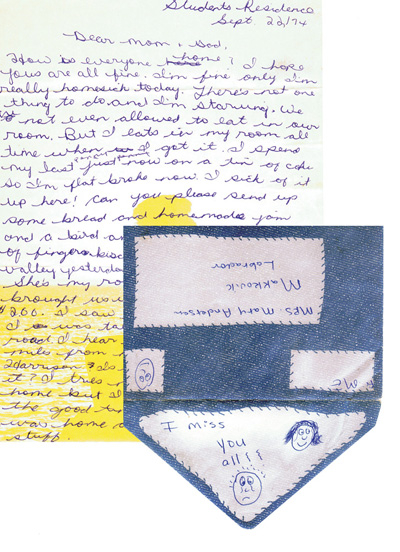 Students Residence
Sept. 22/74
Dear Mom & Dad,
How is everyone home? I hope
yous are all fine. I'm fine only I'm
really homesick today. There's not one
thing to do and I'm starving. We
not even allowed to eat in our
room. But I eats in my room all
time when I got it. I spend
my last just now on a tin of coke
so I'm flat broke now. I sick of it
up here! Can you please send up
some bread and homemade jam
and a bird an
of finger bisc
valley yesterda
She's my ro
brought us
$2.00. I saw
I was ta
road. I hear
miles from
Harrison
it? I tries
home but
the good
was home
stuff.
MRS Mary Andersen
Makkovik
Labrador
Mc
I miss
you
all!!